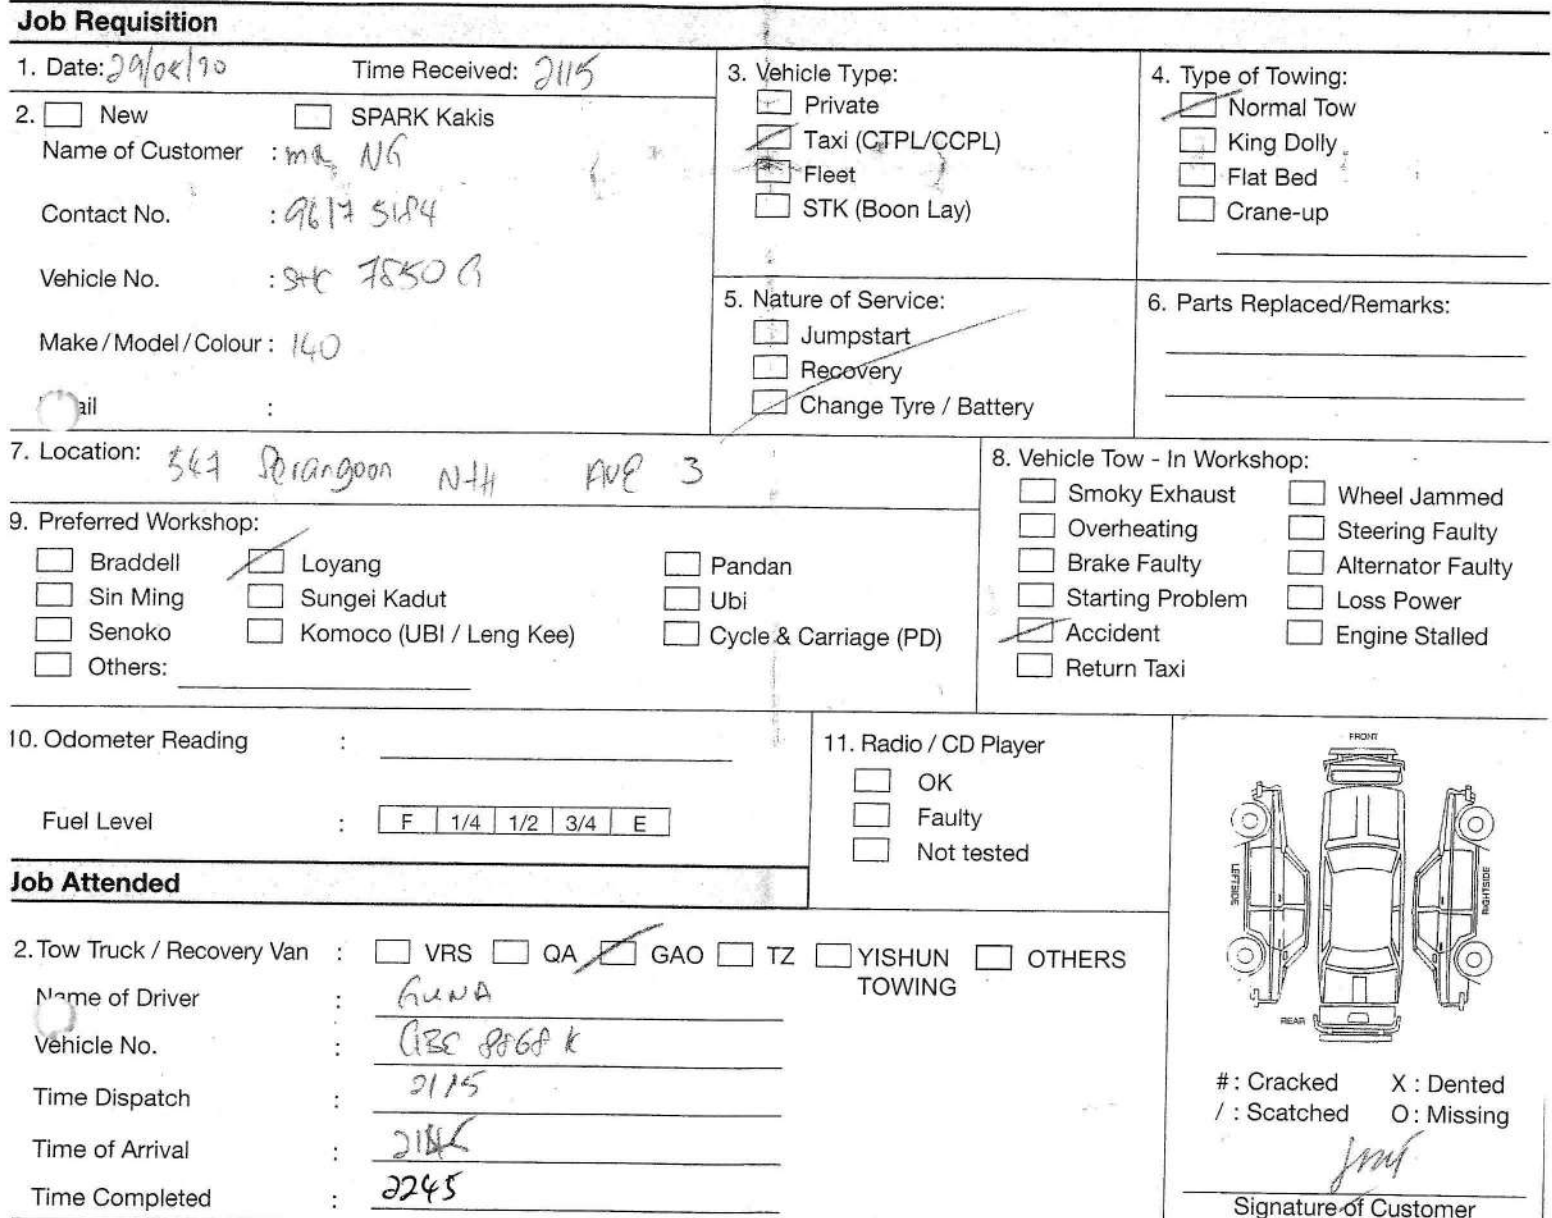 Job Requisition
1. Date: 29/08/20 Time Received: 2115
2. New SPARK Kakis
Name of Customer : mr NG
Contact No. : 9617 5184
Vehicle No. : 7850 G
Make / Model / Colour : 140
ail :
3. Vehicle Type:
Private
Taxi (CTPL/CCPL)
Fleet
STK (Boon Lay)
4. Type of Towing:
Normal Tow
King Dolly
Flat Bed
Crane-up
5. Nature of Service:
Jumpstart
Recovery
Change Tyre / Battery
6. Parts Replaced/Remarks:
7. Location: 547 Serangoon Nth Ave 3
8. Vehicle Tow - In Workshop:
Smoky Exhaust Wheel Jammed
Overheating Steering Faulty
Brake Faulty Alternator Faulty
Starting Problem Loss Power
Accident Engine Stalled
Return Taxi
9. Preferred Workshop:
Braddell Loyang Pandan
Sin Ming Sungei Kadut Ubi
Senoko Komoco (UBI / Leng Kee) Cycle & Carriage (PD)
Others:
10. Odometer Reading :
Fuel Level : F 1/4 1/2 3/4 E
11. Radio / CD Player
OK
Faulty
Not tested
FRONT
LEFTSIDE
RIGHTSIDE
REAR
# : Cracked X : Dented
/ : Scatched O : Missing
Signature of Customer
Job Attended
2. Tow Truck / Recovery Van : VRS QA GAO TZ YISHUN TOWING OTHERS
Name of Driver : GUNA
Vehicle No. : GBE 8868 K
Time Dispatch : 2115
Time of Arrival :
Time Completed : 2245